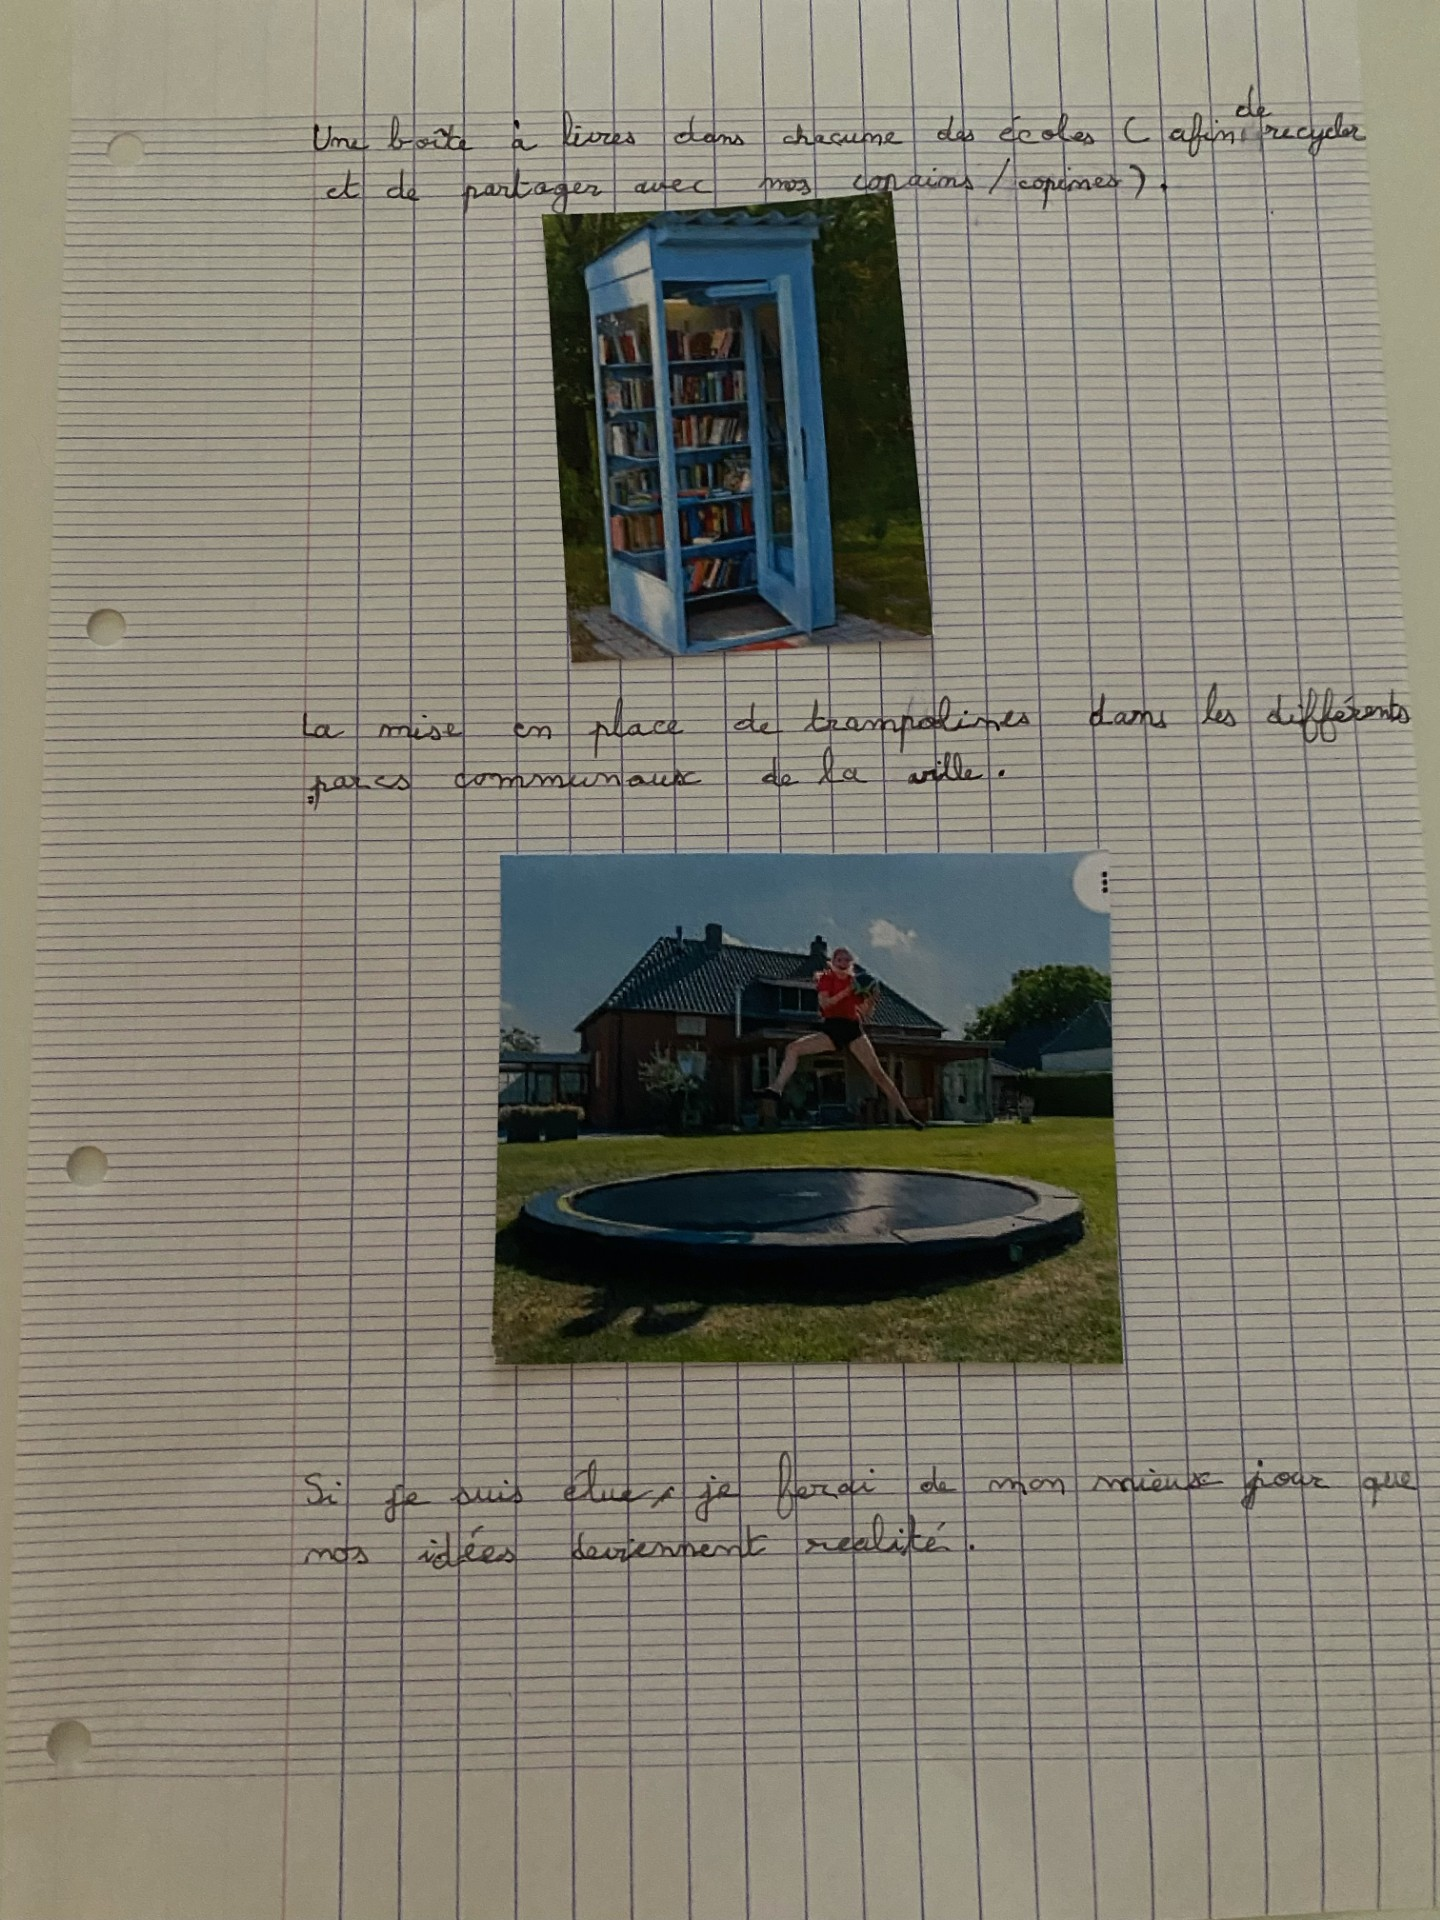 Une boîte à livres dans chacune des écoles ( afin de recycler
et de partager avec mes copains / copines ).
La mise en place de trampolines dans les différents
parcs communaux de la ville.
Si je suis élue, je ferai de mon mieux pour que
nos idées deviennent realité.